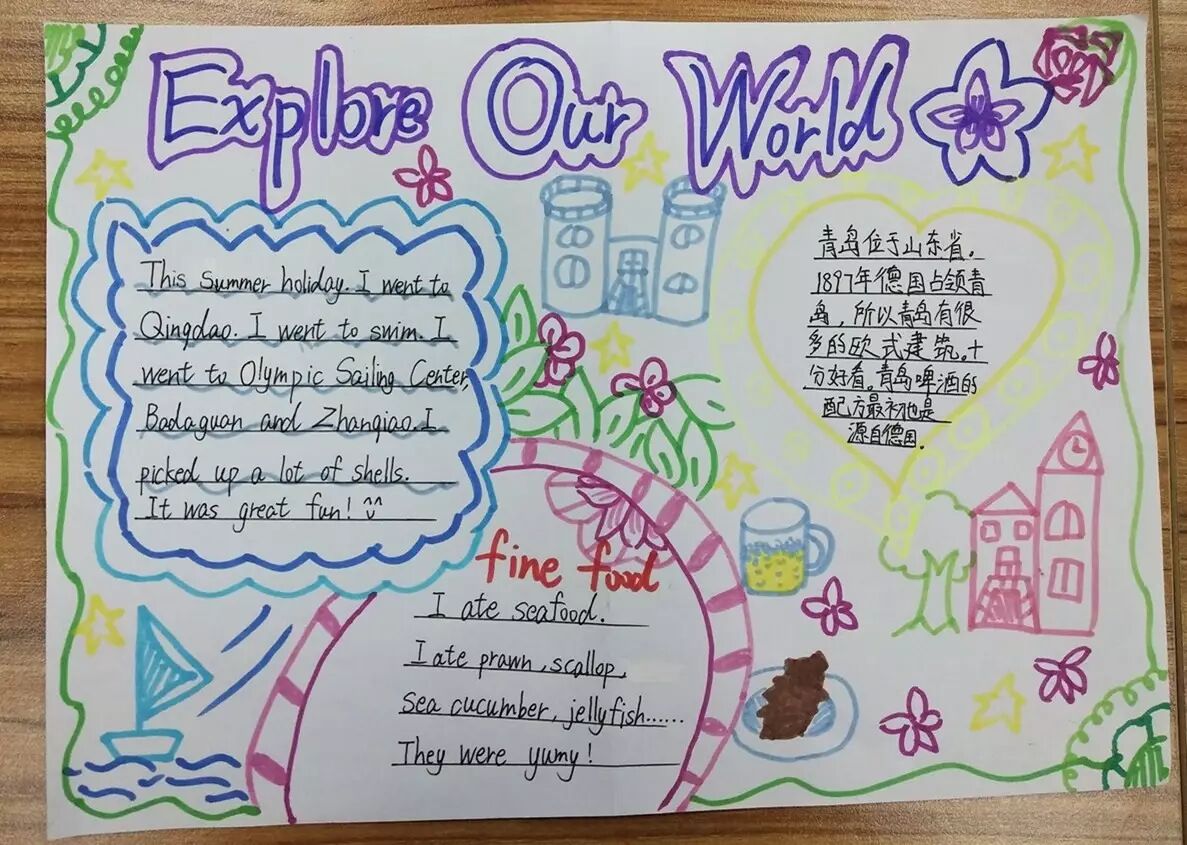 Explore Our World
This summer holiday. I went to
Qingdao. I went to swim. I
went to Olympic Sailing Center,
Badaguan and Zhanqiao. I
picked up a lot of shells.
It was great fun!
青岛位于山东省。
1897年德国占领青
岛，所以青岛有很
多的欧式建筑。十
分好看。青岛啤酒的
配方最初也是
源自德国.
fine food
I ate seafood.
I ate prawn, scallop,
sea cucumber, jellyfish……
They were yumy!